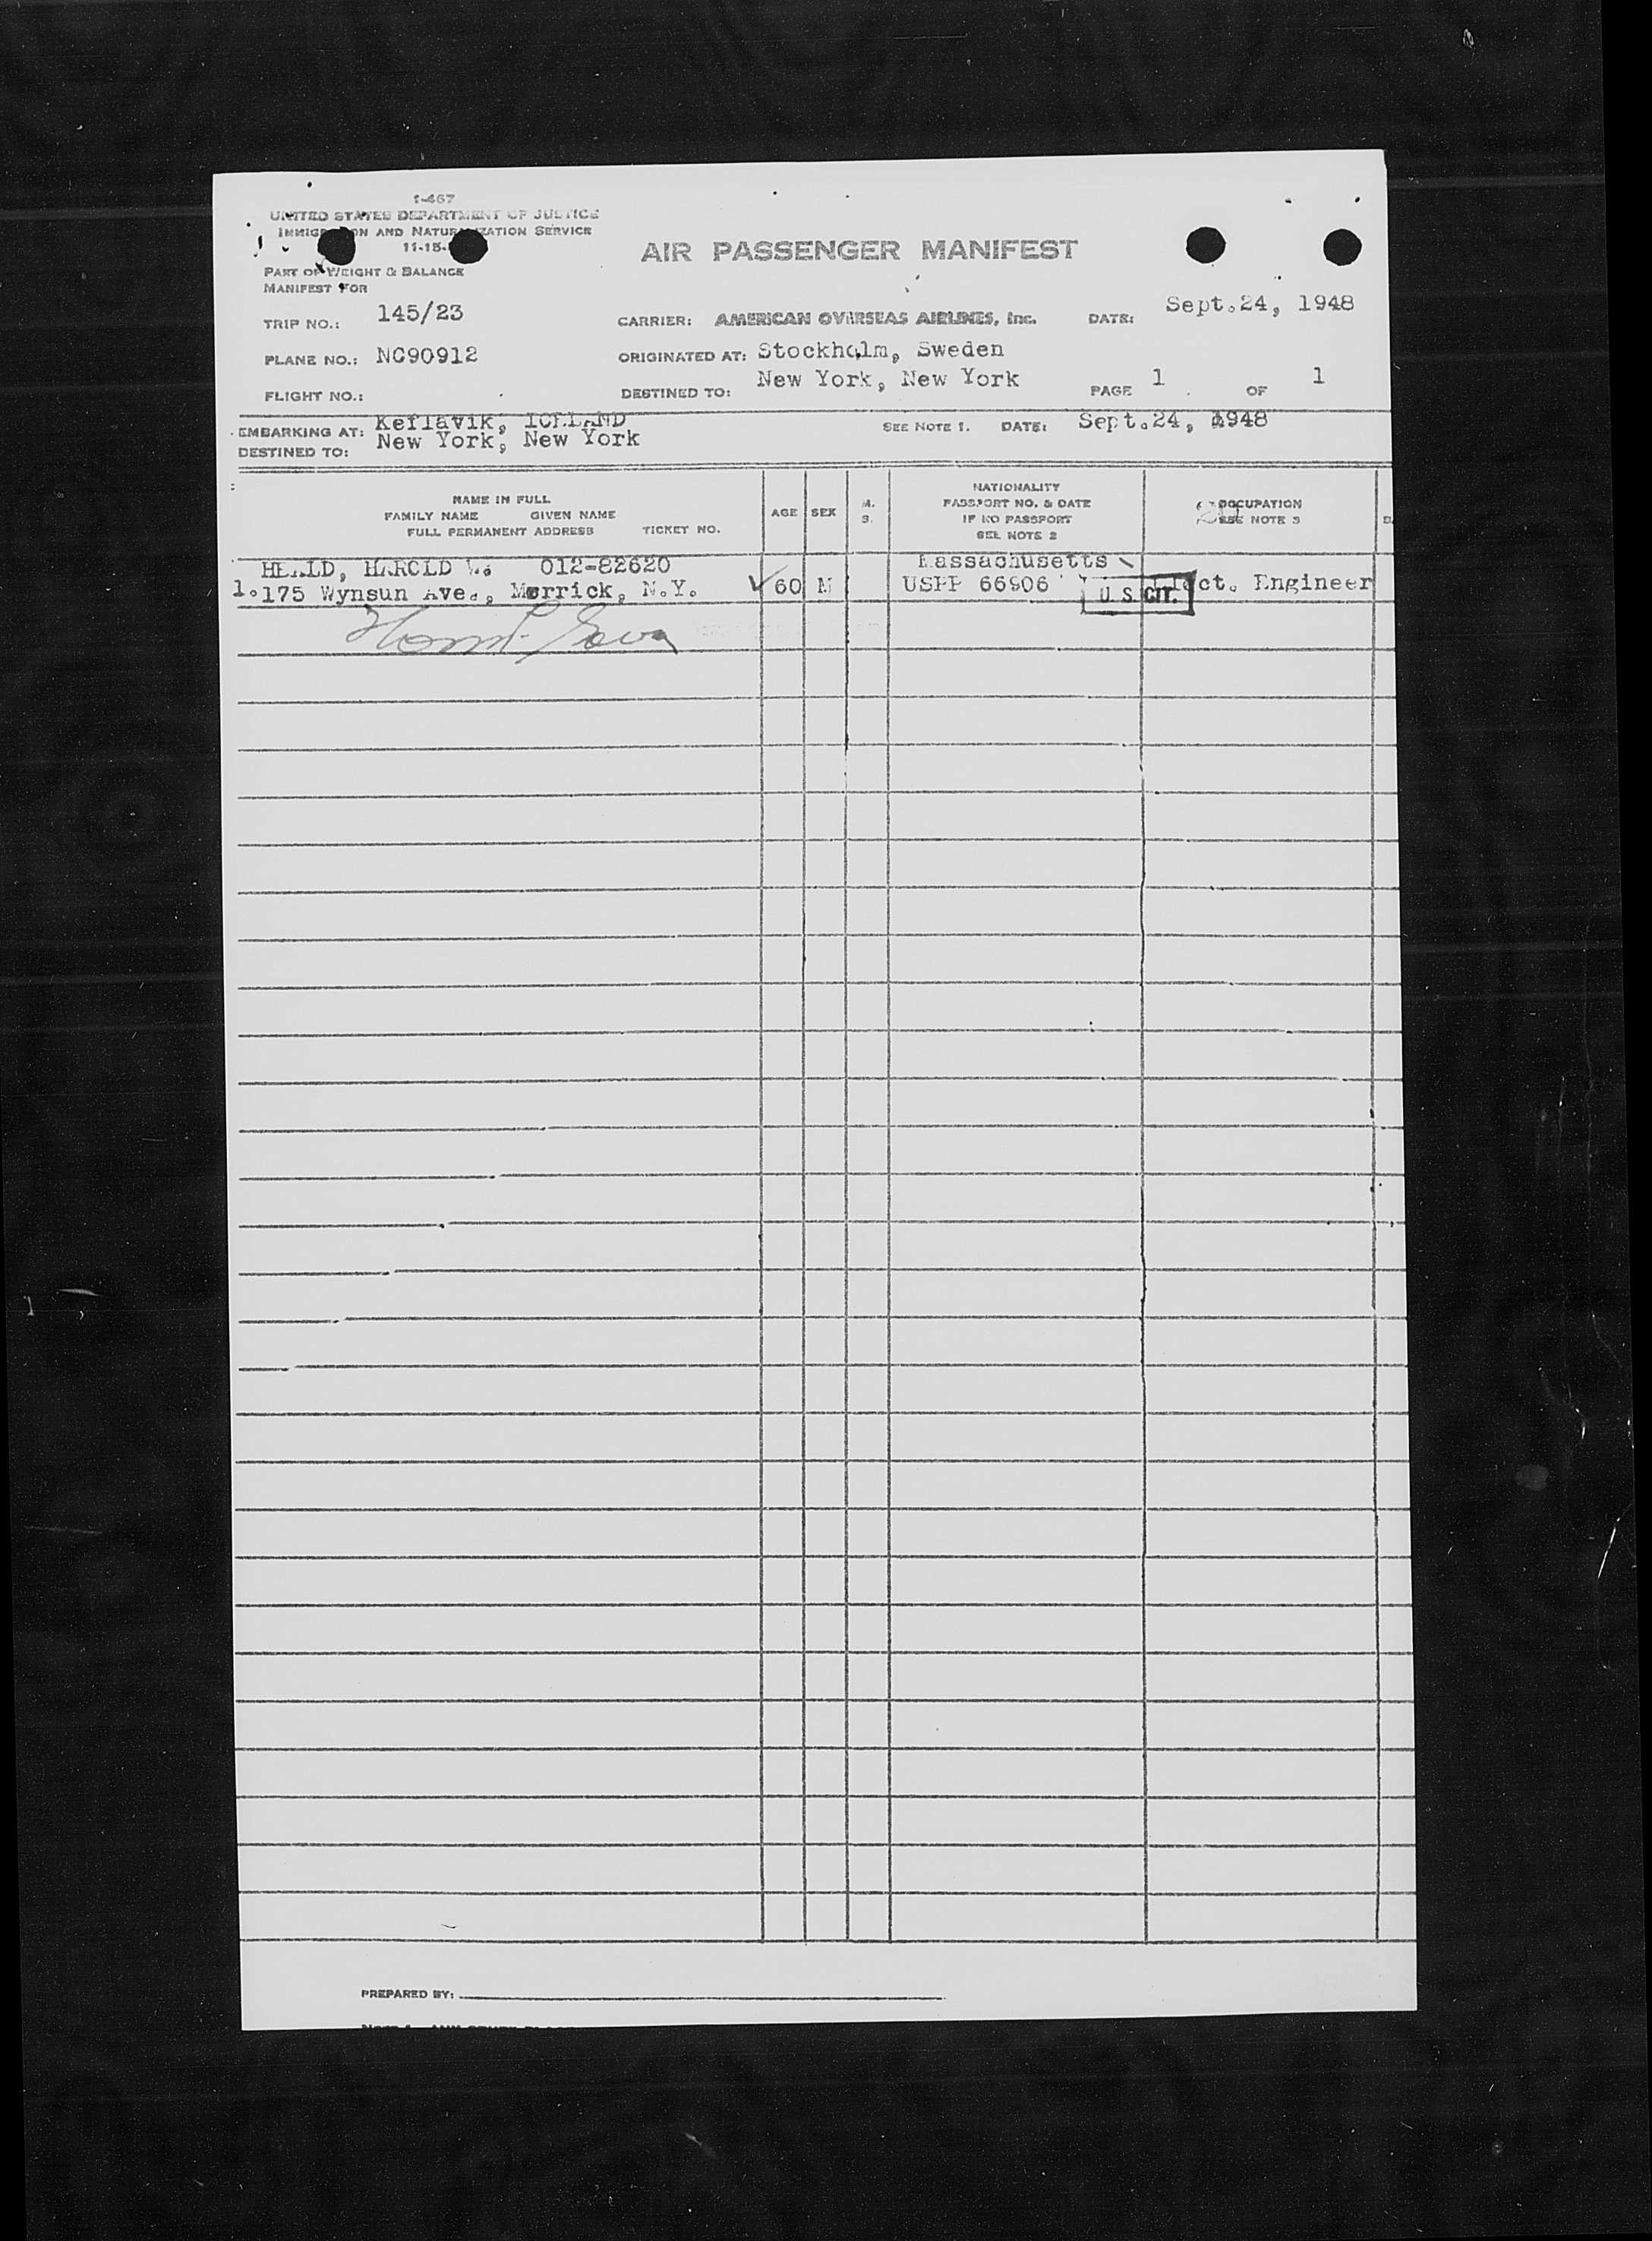 1-467
UNITED STATES DEPARTMENT OF JUSTICE
IMMIGRATION AND NATURALIZATION SERVICE
11-15-
AIR PASSENGER MANIFEST
PART OF WEIGHT & BALANCE
MANIFEST FOR
TRIP NO.: 145/23 CARRIER: AMERICAN OVERSEAS AIRLINES, Inc. DATE: Sept.24, 1948
PLANE NO.: NC90912 ORIGINATED AT: Stockholm, Sweden
FLIGHT NO.: DESTINED TO: New York, New York PAGE 1 OF 1
EMBARKING AT: Keflavik, ICELAND SEE NOTE 1. DATE: Sept.24, 1948
DESTINED TO: New York, New York
NAME IN FULL
FAMILY NAME GIVEN NAME
FULL PERMANENT ADDRESS TICKET NO.
AGE SEX M. S.
NATIONALITY
PASSPORT NO. & DATE
IF NO PASSPORT
SEE NOTE 2
OCCUPATION
SEE NOTE 3
HEALD, HAROLD W. 012-82620 Massachusetts
1. 175 Wynsun Ave., Merrick, N.Y. 60 M USPP 66906 U. S. CIT. Elect. Engineer
PREPARED BY: